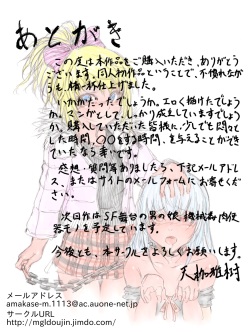 あとがき
この度は本作品をご購入いただき、ありがとう
ございます。同人初作品ということで、不慣れながら
も、精一杯仕上げました。
いかがだったでしょうか。エロく描けたでしょう
か。マンガとして、しっかり成立していますでしょう
か。購入していただいた皆様に、少しでも悶々と
した時間、〇〇をする時間、を与えることができ
ていたなら幸いです。
感想・質問等ありましたら、下記メールアド
レス、またはサイトのメールフォームにお寄せくだ
さい。
次回作はSF舞台の男の娘 機械姦肉便
器モノを予定しています。
今後とも、本サークルをよろしくお願いします。
メールアドレス
amakase-m.1113@ac.auone-net.jp
サークルURL
http://mgldoujin.jimdo.com/